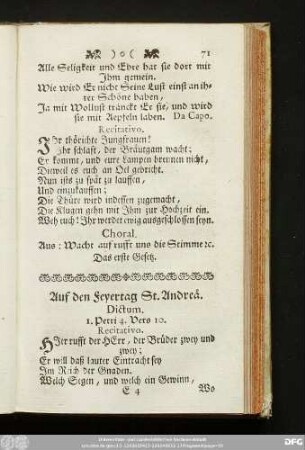 )o( 71
Alle Seligkeit und Ehre hat sie dort mit
Ihm gemein.
Wie wird Er nicht Seine Lust einst an ih-
rer Schöne haben,
Ja mit Wollust tränckt Er sie, und wird
sie mit Aepfeln laben. Da Capo.
Recitativo.
Ihr thörichte Jungfrauen!
Ihr schlaft, der Bräutgam wacht;
Er kommt, und eure Lampen brennen nicht,
Dieweil es euch an Oel gebricht.
Nun ists zu spät zu lauffen,
Und einzukauffen;
Die Thüre wird indessen zugemacht,
Die Klugen gehn mit Ihm zur Hochzeit ein.
Weh euch! Ihr werdet ewig ausgeschlossen seyn.
Choral.
Aus: Wachet auf rufft uns die Stimme ꝛc.
Das erste Gesetz.
Auf den Feyertag St. Andreä.
Dictum.
1. Petri 4. Vers 10.
Recitativo.
HIer rufft der HErr, der Brüder zwey und
zwey;
Er will daß lauter Eintracht sey
Im Reich der Gnaden.
Welch Segen, und welch ein Gewinn,
E 4 Wo